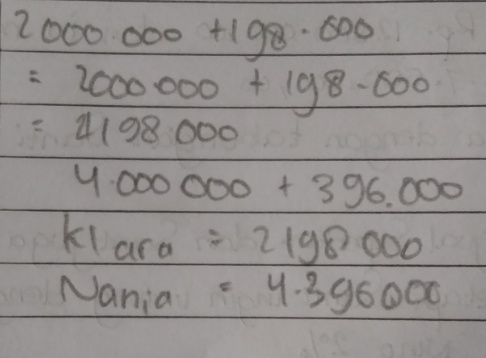 2000.000 + 198.000
= 2000000 + 198.000
= 2198.000
4.000000 + 396.000
Klara = 2198000
Nania = 4.396000